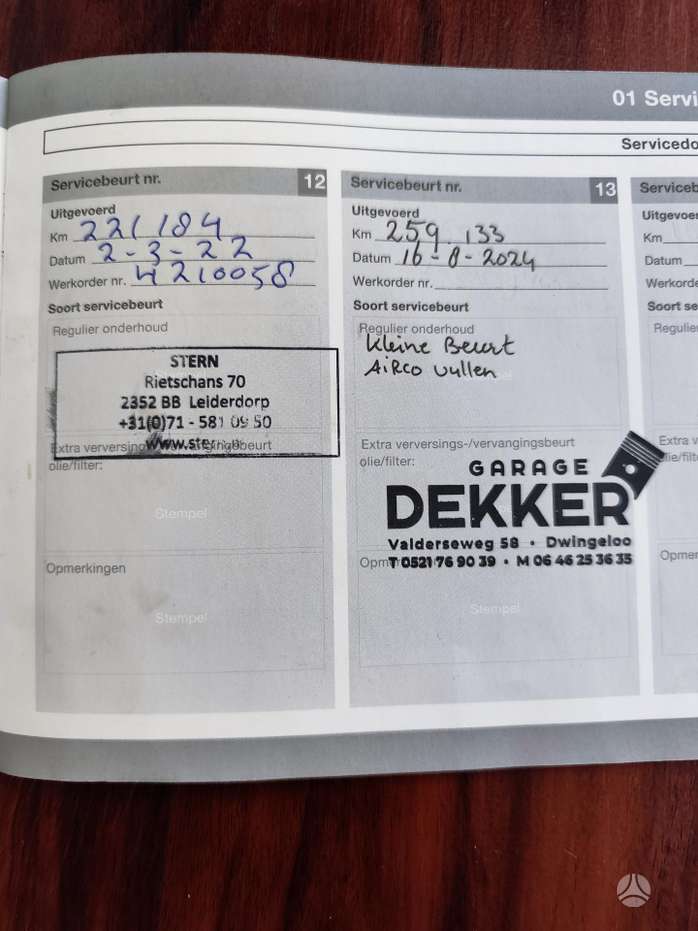 01 Servi
Servicedo
Servicebeurt nr. 12
Uitgevoerd
Km 221184
Datum 2-3-22
Werkorder nr. 4210058
Soort servicebeurt
Regulier onderhoud
STERN
Rietschans 70
2352 BB Leiderdorp
+31(0)71 - 581 09 50
Extra verversings-/vervangingsbeurt
olie/filter:
Stempel
Opmerkingen
Stempel
Servicebeurt nr. 13
Uitgevoerd
Km 259 133
Datum 16-8-2024
Werkorder nr.
Soort servicebeurt
Regulier onderhoud
Kleine Beurt
Airco vullen
Extra verversings-/vervangingsbeurt
olie/filter:
GARAGE
DEKKER
Valderseweg 58 • Dwingeloo
T 0521 76 90 39 • M 06 46 25 36 35
Stempel
Serviceb
Uitgevoer
Km
Datum
Werkorde
Soort se
Regulie
Extra v
olie/filt
Opmer